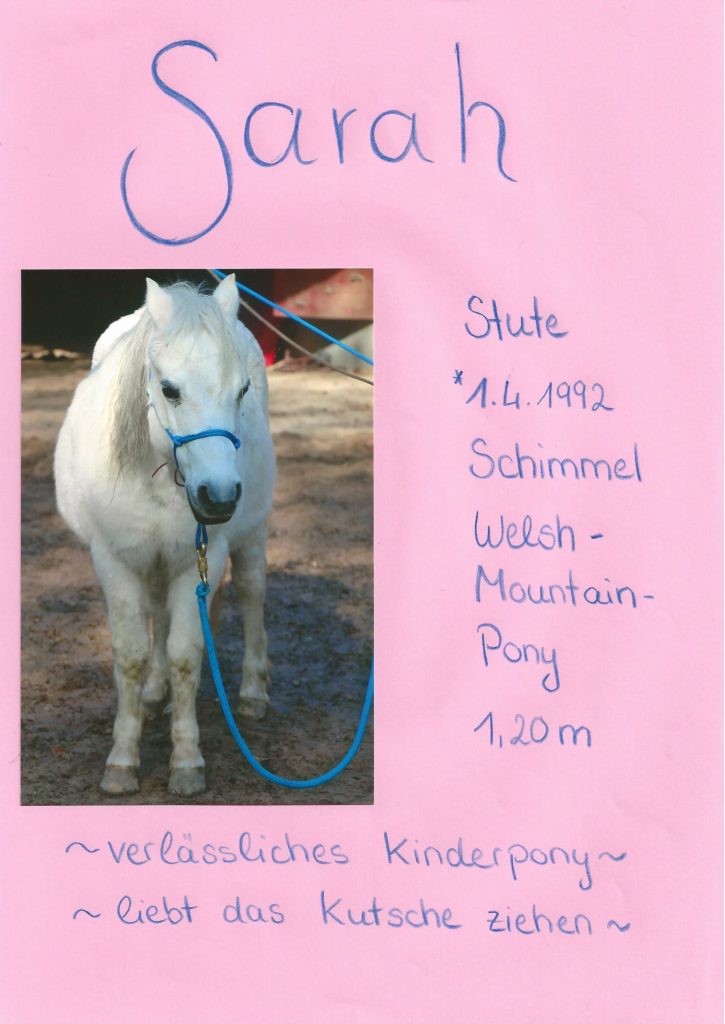 Sarah
Stute
*1.4.1992
Schimmel
Welsh-
Mountain-
Pony
1,20m
~verlässliches Kinderpony~
~ liebt das Kutsche ziehen ~